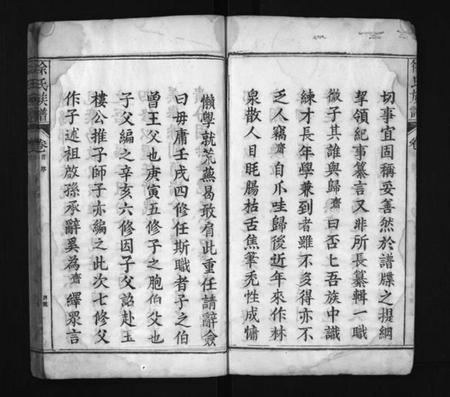 切事宜固稱妥善然於譜牒之提綱
挈領紀事纂言又非所長纂輯一職
微子其誰與歸齋曰否否吾族中識
練才長年學兼到者雖不多得亦不
乏人竊齋自爪哇歸後近年來作林
泉散人目眊腸枯舌焦筆禿性成慵
懶學就荒蕪曷敢肩此重任請辭僉
曰毋庸壬戌四修任斯職者子之伯
曾王父也庚寅五修子之胞伯父也
子父編之辛亥六修因子父詒赴玉
樓公推子師子亦編之此次七修父
作子述祖啟孫承辭奚為齋繹眾言
徐氏族譜
卷首
序